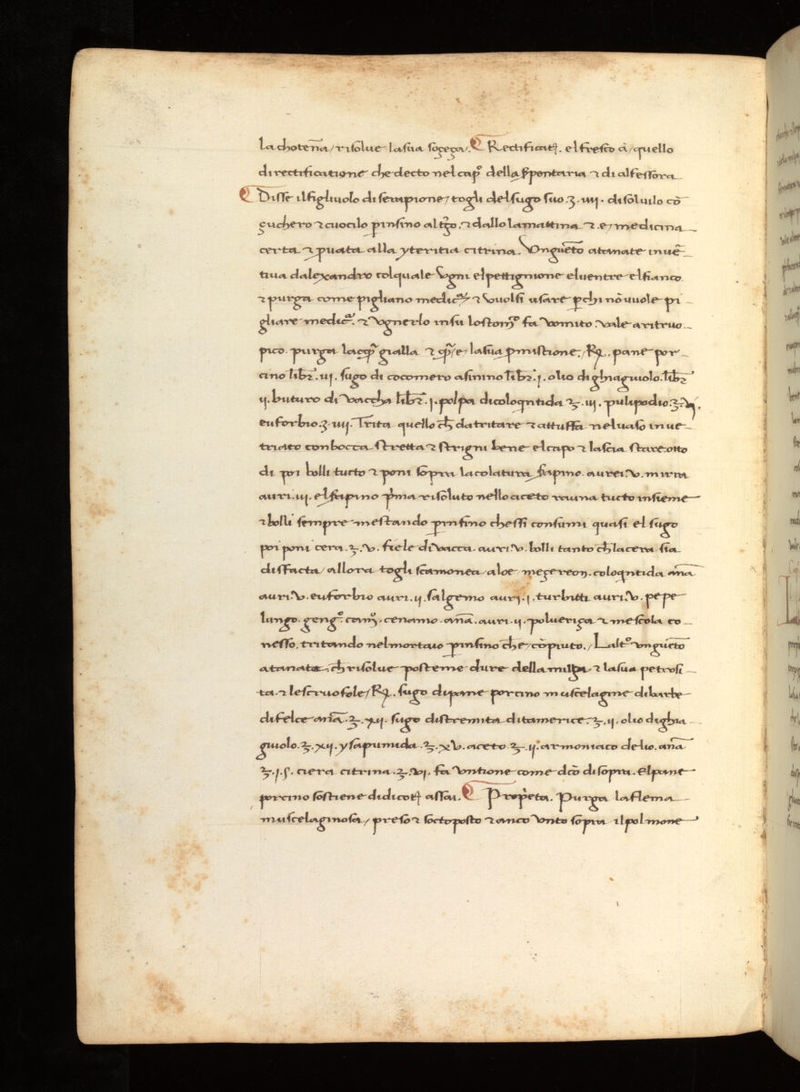 la chotena / risolue la sua sogeça /. Rectificatꝭ. el fresco cū quello
di rectificatione che decto nel cap̊ della sp̄pentaria ⁊ di alfessora
Disse il figliuolo di serapione / togli del sugo suo .ʒ. iiij. disoluilo cō
çuchero ⁊ cuocilo p insino al terço. ⁊ dallo la mattina ⁊ . e / medicina
certa ⁊ puata alla yteritia citrina. Vngueto atanate inuē
tiua dalexandro colquale vgni el pettignone el uentre el fianco
⁊ purga come pigliano medic̄ ⁊ vuolsi usare p chi nō uuole pi
gliare medic̄. ⁊ vgnerlo in su lo stom̊ fa vomito. Vale a ritruo
pico. purga lacq̄ gialla ⁊ / e / la sua pmistione; / ℞. pane por
cino libr̄. iij. sugo di cocomero asinino libr̄. j. olio di ghiaguiolo. libr̄
ij. buturo di vaccha libr̄. j. polpa di coloqntida ℥. iij. pulipodio ʒ. vj.
euforbio. ʒ. iiij. Trita quello ch̄ da tritare ⁊ attuffa nel uaso inue
triato con bocca stretta ⁊ strigni bene el capo ⁊ lascia stare otto
di poi bolli tucto ⁊ poni sopra la colatura sapino aurei .v. mirra
auri. iij. el sapino pma risoluto nello aceto rauna tucto insieme
⁊ bolli sempre mestando p insino che ssi consumi quasi el sugo
poi poni cera .℥. v. fiele di vacca. auri. v. bolli tanto ch̄ la cera sia
disfacta / allora togli scamonea / aloe meçereon. coloqntida ana
auri. v. euforbio auri. ij. salgemo aurj. j. turbitti auri. v. pepe
lungo. geng̊. cam̊. cenamo. ana. auri. ij. poluериça ⁊ mescola co
nesso. tritando nel mortaio p insino che / copiuto. / Lalt̊ vngueto
atanata: ch̄ risolue posteme dure della milça ⁊ la sua petrosi
ta. ⁊ le scruofole / ℞. sugo di pane porcino muscelagine di barbe
di felce ana. ℥. xij. sugo di stremita di tamerice. ℥. ij. olio di ghia
guiolo. ℥. xij. ysapumida .℥. xv. aceto ℥. ij. armoniaco delio. ana
℥. j. s. ciera citrina .℥. vj. fa vntione come dcō di sopra. El pane
porcino sostiene di dicotꝭ assai. Propeta. Purga la flema
muscelaginosa / preso ⁊ soctoposto ⁊ anco vnto sopra il polmone